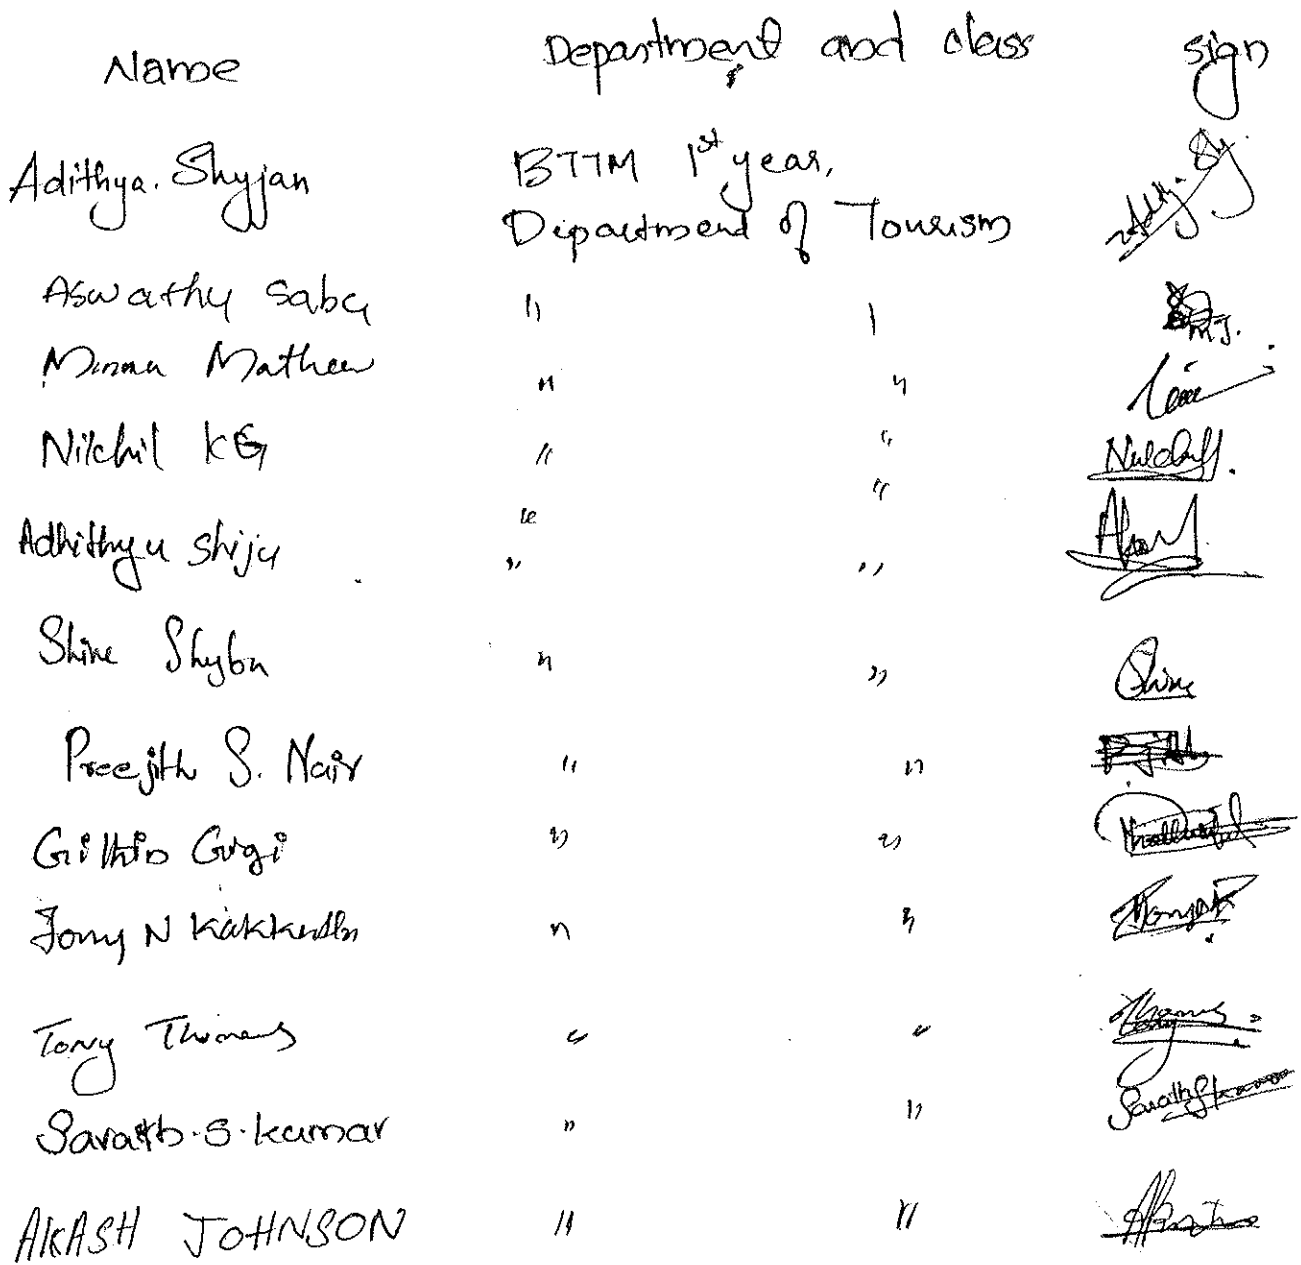 Name Department and class sign
Adithya. Shyjan BTTM 1st year,
Department of Tourism
Aswathy Sabu " "
Minnu Mathew " "
Nikhil KG " "
" "
Adhithya Shiju " "
Shine Shybu " " Shine
Preejith S. Nair " "
Githin Gigi " "
Jony N " "
Tony Thomas " "
Sarath.S.kumar " " Sarath S kumar
AKASH JOHNSON " "